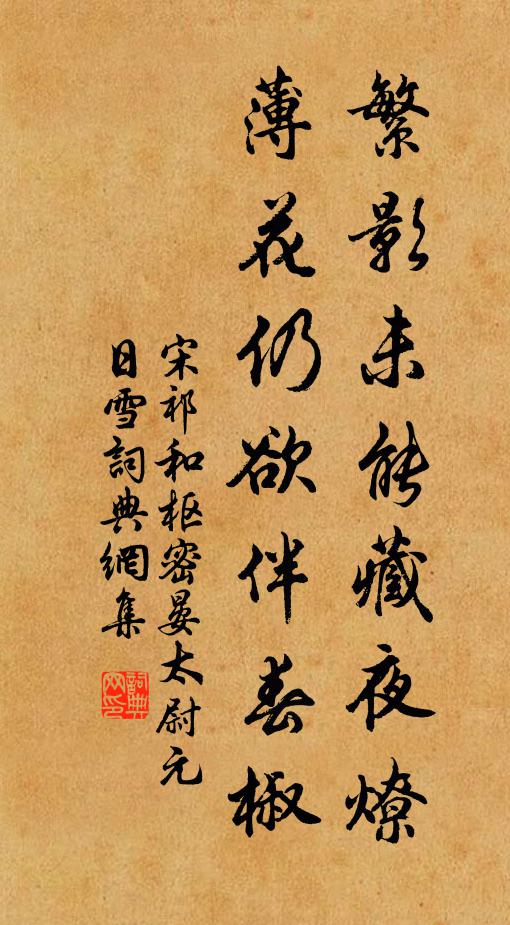 繁影未能藏夜燎
薄花仍欲伴春椒
宋祁和枢密晏太尉元
日雪詞典網集
詞典网印